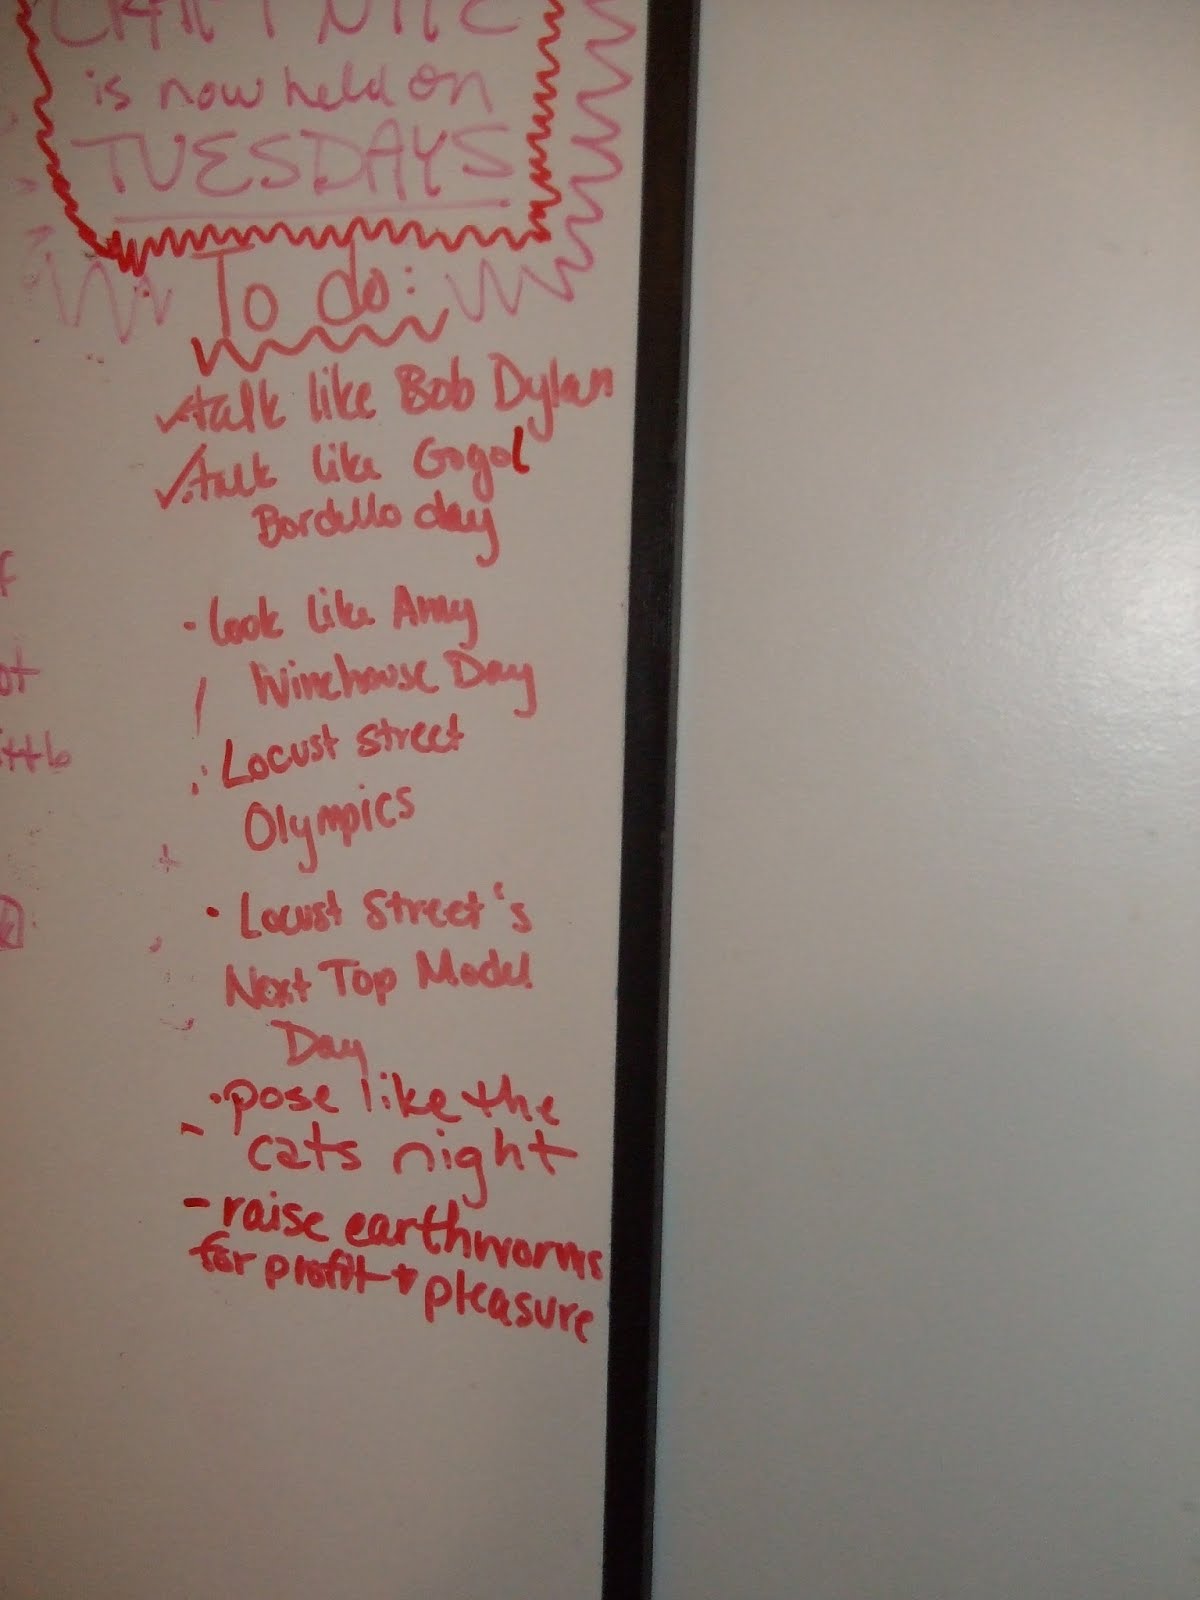 CRAFT NITE
is now held on
TUESDAYS
To do:
✓talk like Bob Dylan
✓talk like Gogol
Bordello day
• look like Amy
Winehouse Day
• Locust Street
Olympics
• Locust Street's
Next Top Model
Day
• pose like the
cats night
- raise earthworms
for profit + pleasure